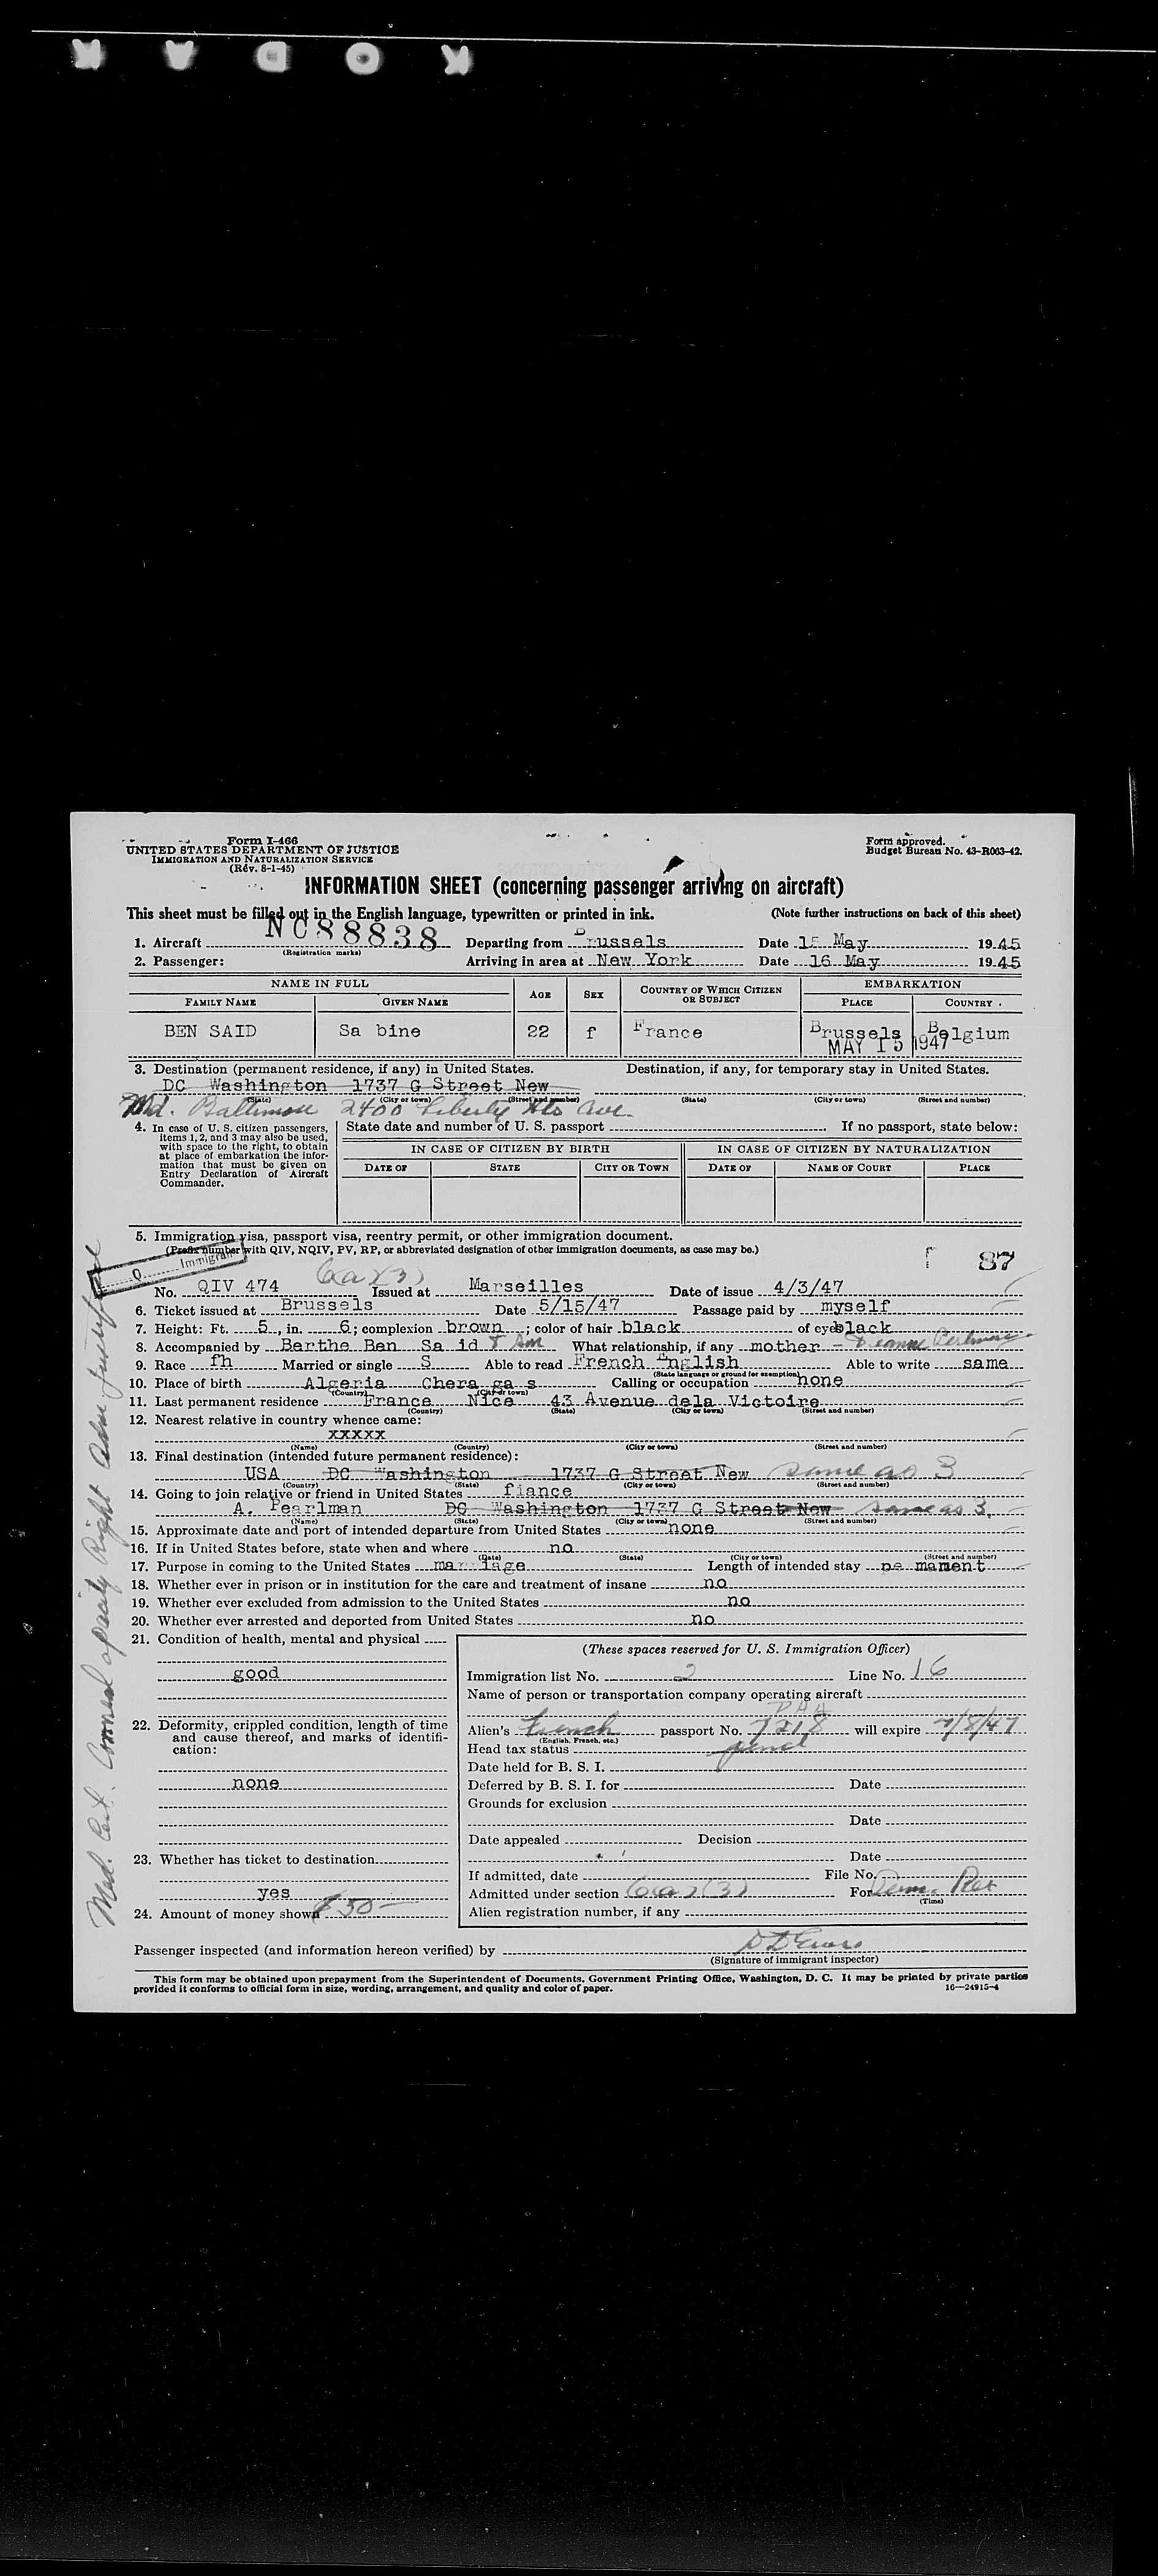 KODAK
Form I-466
UNITED STATES DEPARTMENT OF JUSTICE
IMMIGRATION AND NATURALIZATION SERVICE
(Rev. 8-1-45)
Form approved.
Budget Bureau No. 43-R063-42.
INFORMATION SHEET (concerning passenger arriving on aircraft)
This sheet must be filled out in the English language, typewritten or printed in ink. (Note further instructions on back of this sheet)
1. Aircraft NC88838 Departing from Brussels Date 15 May 1945
(Registration marks)
2. Passenger: Arriving in area at New York Date 16 May 1945
NAME IN FULL AGE SEX COUNTRY OF WHICH CITIZEN OR SUBJECT EMBARKATION
FAMILY NAME GIVEN NAME PLACE COUNTRY
BEN SAID Sa bine 22 f France Brussels Belgium
MAY 15 1947
3. Destination (permanent residence, if any) in United States. Destination, if any, for temporary stay in United States.
DC Washington 1737 G Street New
(State) (City or town) (Street and number) (State) (City or town) (Street and number)
Md. Baltimore 2400 Liberty Hts Ave.
4. In case of U. S. citizen passengers, items 1, 2, and 3 may also be used, with space to the right, to obtain at place of embarkation the information that must be given on Entry Declaration of Aircraft Commander.
State date and number of U. S. passport If no passport, state below:
IN CASE OF CITIZEN BY BIRTH IN CASE OF CITIZEN BY NATURALIZATION
DATE OF STATE CITY OR TOWN DATE OF NAME OF COURT PLACE
5. Immigration visa, passport visa, reentry permit, or other immigration document.
(Prefix number with QIV, NQIV, PV, RP, or abbreviated designation of other immigration documents, as case may be.)
87
Q Immigrant
6(a)(3)
No. QIV 474 Issued at Marseilles Date of issue 4/3/47
6. Ticket issued at Brussels Date 5/15/47 Passage paid by myself
7. Height: Ft. 5, in. 6; complexion brown; color of hair black of eyes black
8. Accompanied by Berthe Ben Sa id What relationship, if any mother
9. Race fh Married or single S Able to read French English Able to write same
(State language or ground for exemption)
10. Place of birth Algeria Chera ga s Calling or occupation none
(Country) (City or town)
11. Last permanent residence France Nice 43 Avenue dela Victoire
(Country) (State) (City or town) (Street and number)
12. Nearest relative in country whence came:
xxxxx
(Name) (Country) (City or town) (Street and number)
13. Final destination (intended future permanent residence):
USA DC Washington 1737 G Street New same as 3
(Country) (State) (City or town) (Street and number)
14. Going to join relative or friend in United States fiance
A. Pearlman DC Washington 1737 G Street New same as 3.
(Name) (State) (City or town) (Street and number)
15. Approximate date and port of intended departure from United States none
16. If in United States before, state when and where no
(Date) (State) (City or town) (Street and number)
17. Purpose in coming to the United States marriage Length of intended stay pe mament
18. Whether ever in prison or in institution for the care and treatment of insane no
19. Whether ever excluded from admission to the United States no
20. Whether ever arrested and deported from United States no
21. Condition of health, mental and physical
good
22. Deformity, crippled condition, length of time and cause thereof, and marks of identification:
none
23. Whether has ticket to destination
yes
24. Amount of money shown $50-
(These spaces reserved for U. S. Immigration Officer)
Immigration list No. 2 Line No. 16
Name of person or transportation company operating aircraft
PAA
Alien's French passport No. 7218 will expire 7/8/47
(English, French, etc.)
Head tax status
Date held for B. S. I.
Deferred by B. S. I. for Date
Grounds for exclusion
Date
Date appealed Decision
Date
If admitted, date File No.
Admitted under section 6(a)(3) For Perm. Res
(Time)
Alien registration number, if any
Passenger inspected (and information hereon verified) by
(Signature of immigrant inspector)
This form may be obtained upon prepayment from the Superintendent of Documents, Government Printing Office, Washington, D. C. It may be printed by private parties
provided it conforms to official form in size, wording, arrangement, and quality and color of paper. 16—24915-4
Med. Cert. Corneal opacity Right